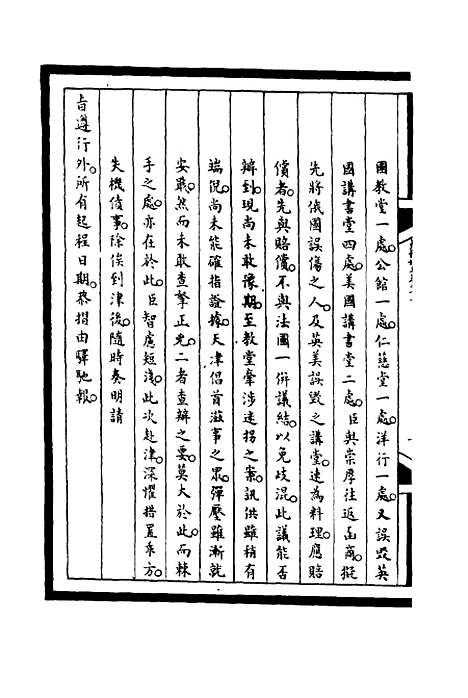 國教堂一處。公館一處。仁慈堂一處。洋行一處。又誤毀英
國講書堂四處。美國講書堂二處。臣與崇厚往返函商。擬
先將俄國誤傷之人。及英美誤毀之講堂。速為料理。應賠
償者。先與賠償。不與法國一併議結。以免歧混。此議能否
辦到。現尚未敢豫期。至教堂牽涉迷拐之案。訊供雖稍有
端倪。尚未能確指證據。天津倡首滋事之眾。彈壓雖漸就
安戢。然而未敢查拏正兇。二者查辦之要。莫大於此。而棘
手之處。亦在於此。臣智慮短淺。此次赴津。深懼措置乖方。
失機僨事。除俟到津後。隨時奏明請
旨遵行外。所有起程日期。恭摺由驛馳報。